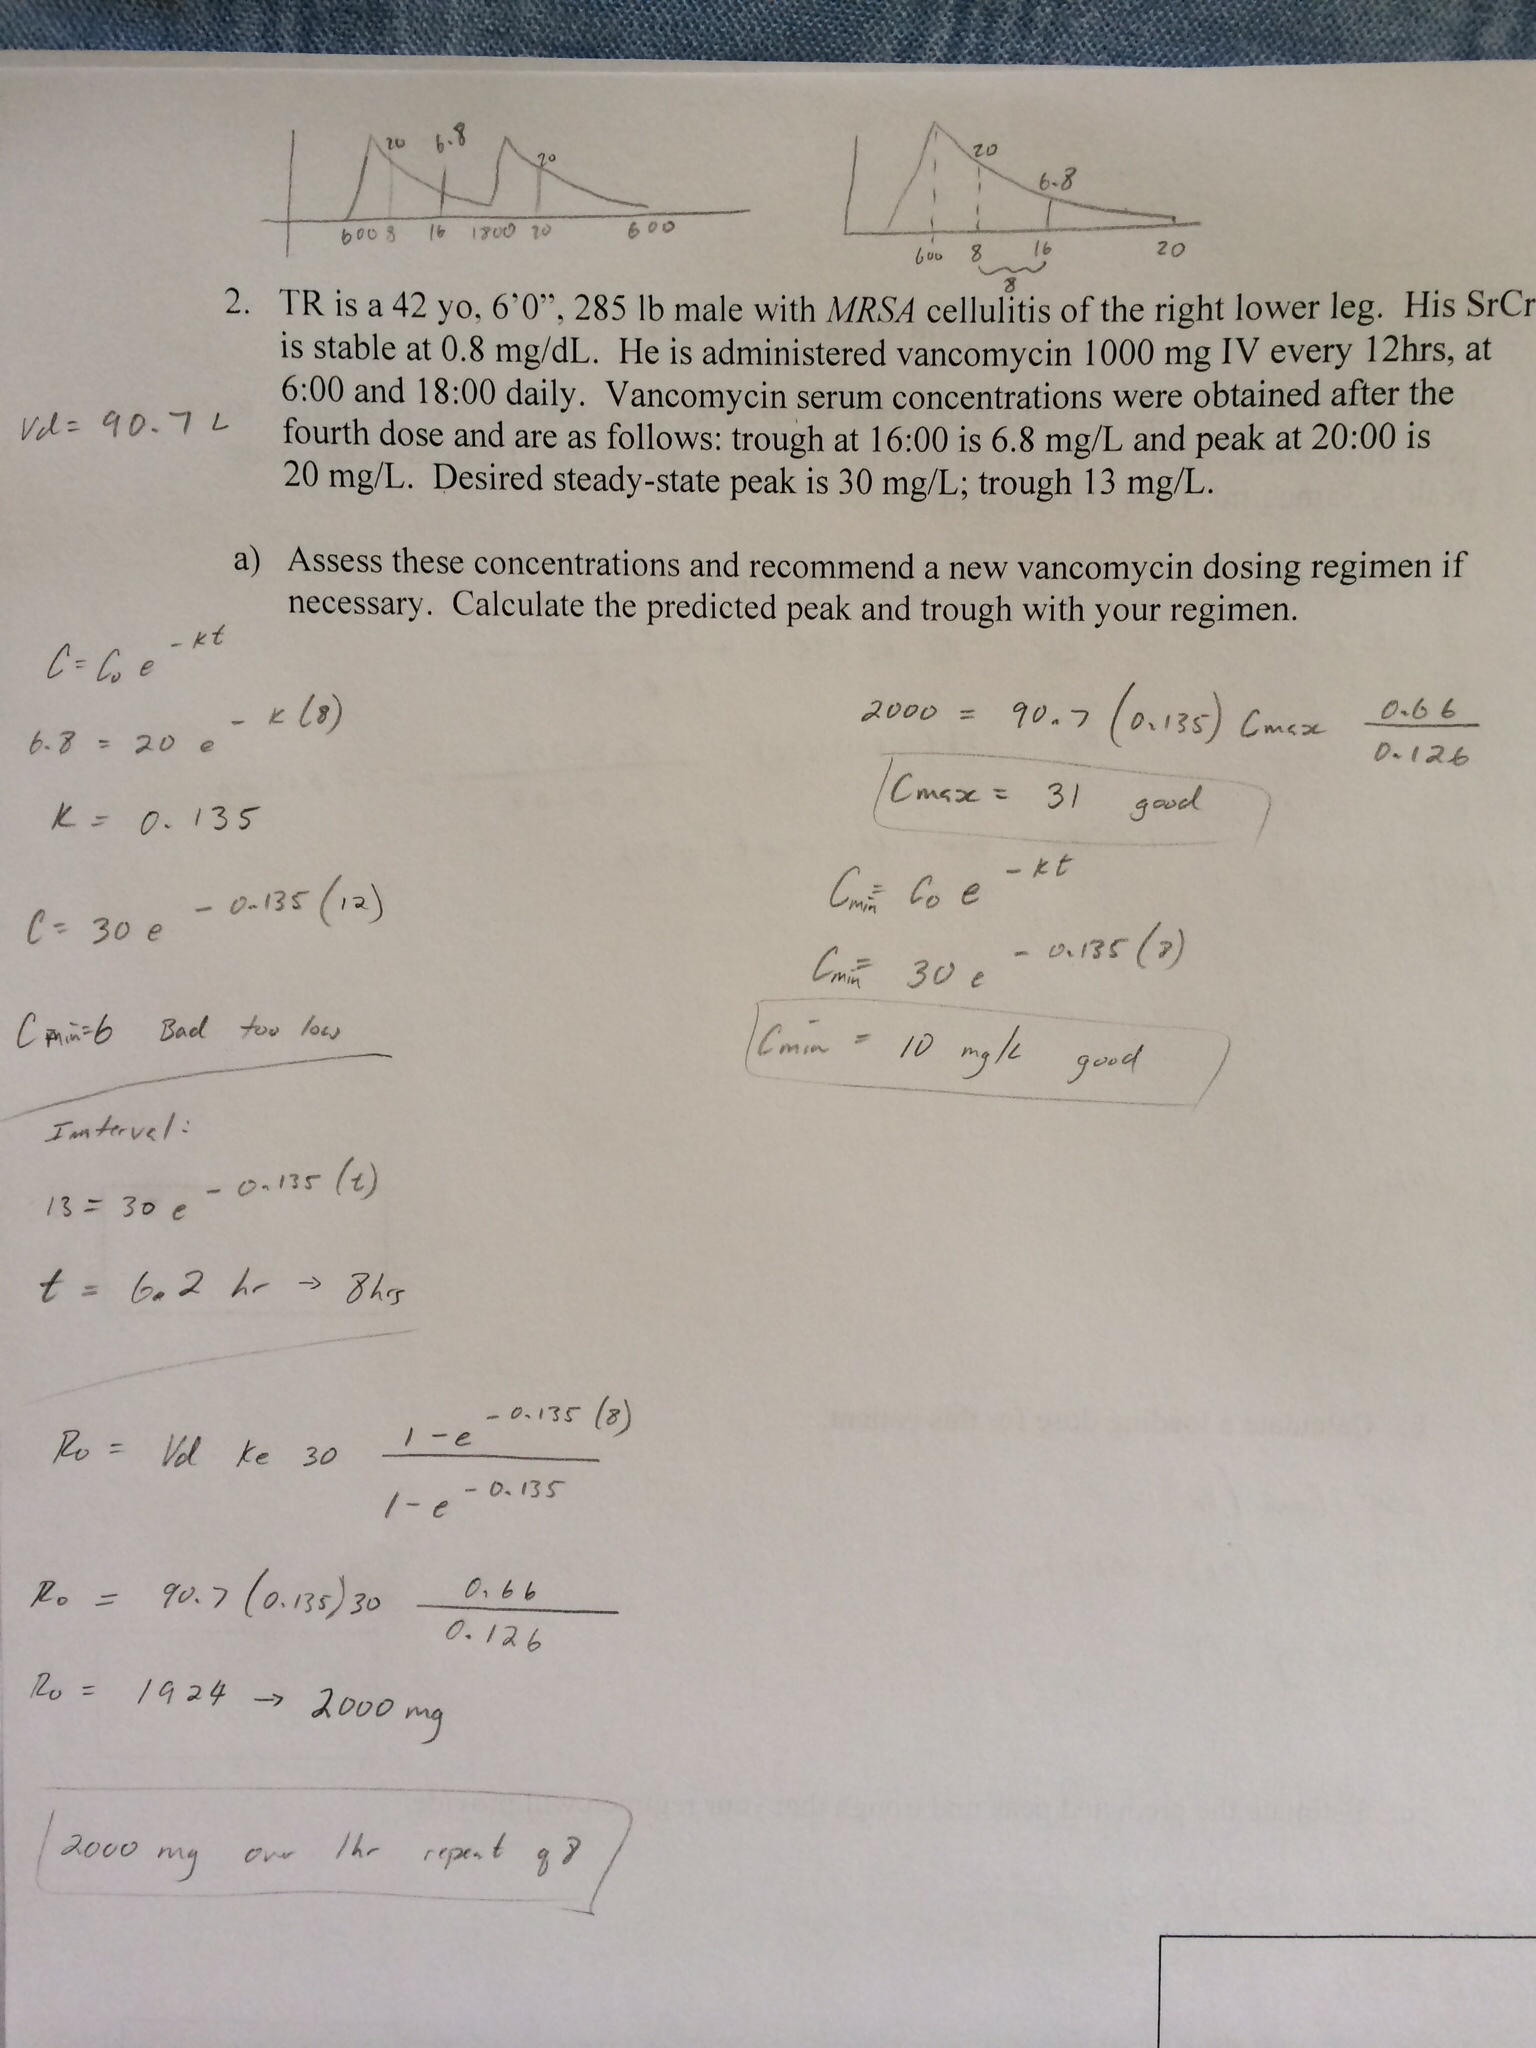 20 6.8 20
600 8 16 1800 20 600
20
6.8
600 8 16 20
8
2. TR is a 42 yo, 6’0”, 285 lb male with MRSA cellulitis of the right lower leg. His SrCr
is stable at 0.8 mg/dL. He is administered vancomycin 1000 mg IV every 12hrs, at
6:00 and 18:00 daily. Vancomycin serum concentrations were obtained after the
fourth dose and are as follows: trough at 16:00 is 6.8 mg/L and peak at 20:00 is
20 mg/L. Desired steady-state peak is 30 mg/L; trough 13 mg/L.
Vd = 90.7 L
a) Assess these concentrations and recommend a new vancomycin dosing regimen if
necessary. Calculate the predicted peak and trough with your regimen.
C = C₀ e^-kt
6.8 = 20 e^-k(8)
K = 0.135
C = 30 e^-0.135(12)
Cmin = 6 Bad too low
Interval:
13 = 30 e^-0.135(t)
t = 6.2 hr → 8hrs
R₀ = Vd Ke 30 (1-e^-0.135(8))/(1-e^-0.135)
R₀ = 90.7(0.135)30 0.66/0.126
R₀ = 1924 → 2000 mg
2000 mg over 1hr repeat q8
2000 = 90.7 (0.135) Cmax 0.66/0.126
Cmax = 31 good
Cmin = C₀ e^-kt
Cmin = 30 e^-0.135(8)
Cmin = 10 mg/L good